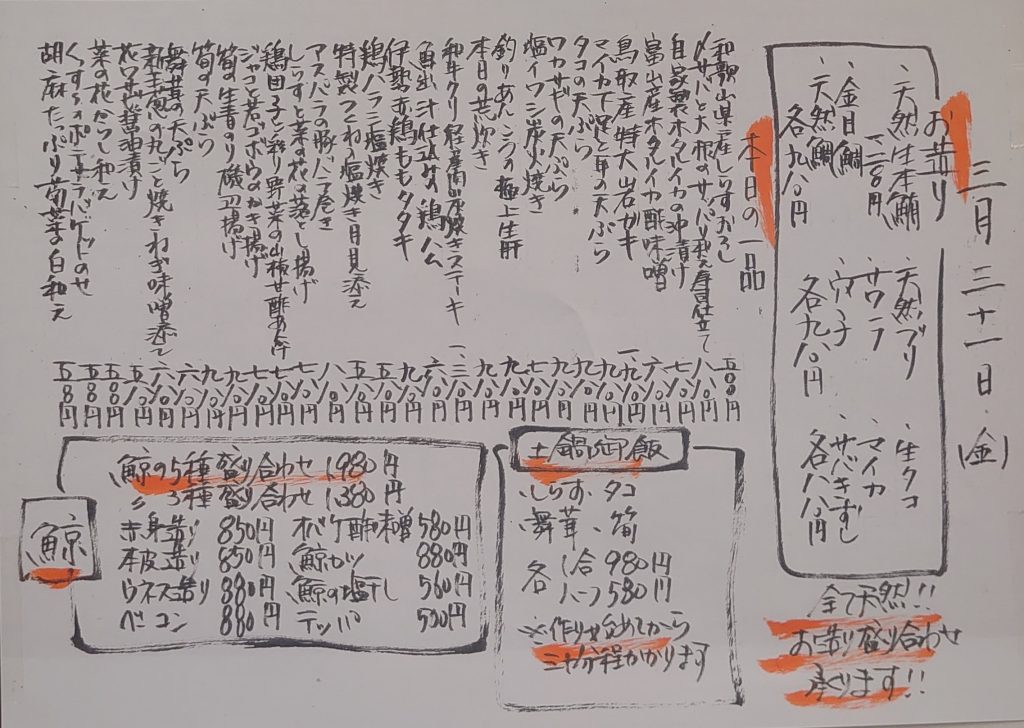 三月三十一日(金)
お造り
、天然生本鮪
一二八〇円
、金目鯛
、天然鯛
各九八〇円
、天然ブリ
、サワラ
、ウマ子
各九八〇円
、生タコ
、マイカ
、サバきずし
各八八〇円
全て天然!!
お造り盛り合わせ
承ります!!
本日の一品
和歌山県産しらすおろし 五八〇円
〆サバと大根のサッパリ和え寿司仕立て 八八〇円
自家製ホタルイカの沖漬け 七八〇円
富山産ホタルイカ酢味噌 六八〇円
鳥取産特大岩ガキ
マイカ下足と筍の天ぷら 九八〇円
タコの天ぷら 九八〇円
ワカサギの天ぷら
塩イワシ炭火焼き
釣りあんこうの極上生肝
本日の荒炊き
和牛クリ 経産 炭焼きステーキ
魚出汁仕込み鶏ハム 六八〇円
伊勢赤鶏ももタタキ 九八〇円
鶏ハラミ塩焼き
特製つくね塩焼き月見添え
アスパラの豚バラ巻き
しらすと菜の花の落とし揚げ
鶏団子と彩り野菜の山椒甘酢あんかけ
ジャコと若ゴボウのかき揚げ
筍の生青のり磯辺揚げ
筍の天ぷら
舞茸の天ぷら 六八〇円
新玉葱の丸ごと焼きねぎ味噌添え
花ワサビ醤油漬け 五八〇円
菜の花からし和え 五八〇円
くすらポテサラバケットのせ 五八〇円
胡麻たっぷり菊菜の白和え 五八〇円
土鍋御飯
しらす、タコ
舞茸、筍
各 1合 980円
ハーフ 580円
※作り始めてから
三十分程かかります
鯨
鯨の5種盛り合わせ 1,980円
〃 3種盛り合わせ 1,380円
赤身造り 850円 オバケ酢味噌 580円
本皮造り 850円 鯨カツ 880円
ウネス造り 880円 鯨の塩干し 560円
ベーコン 880円 テッパ 500円